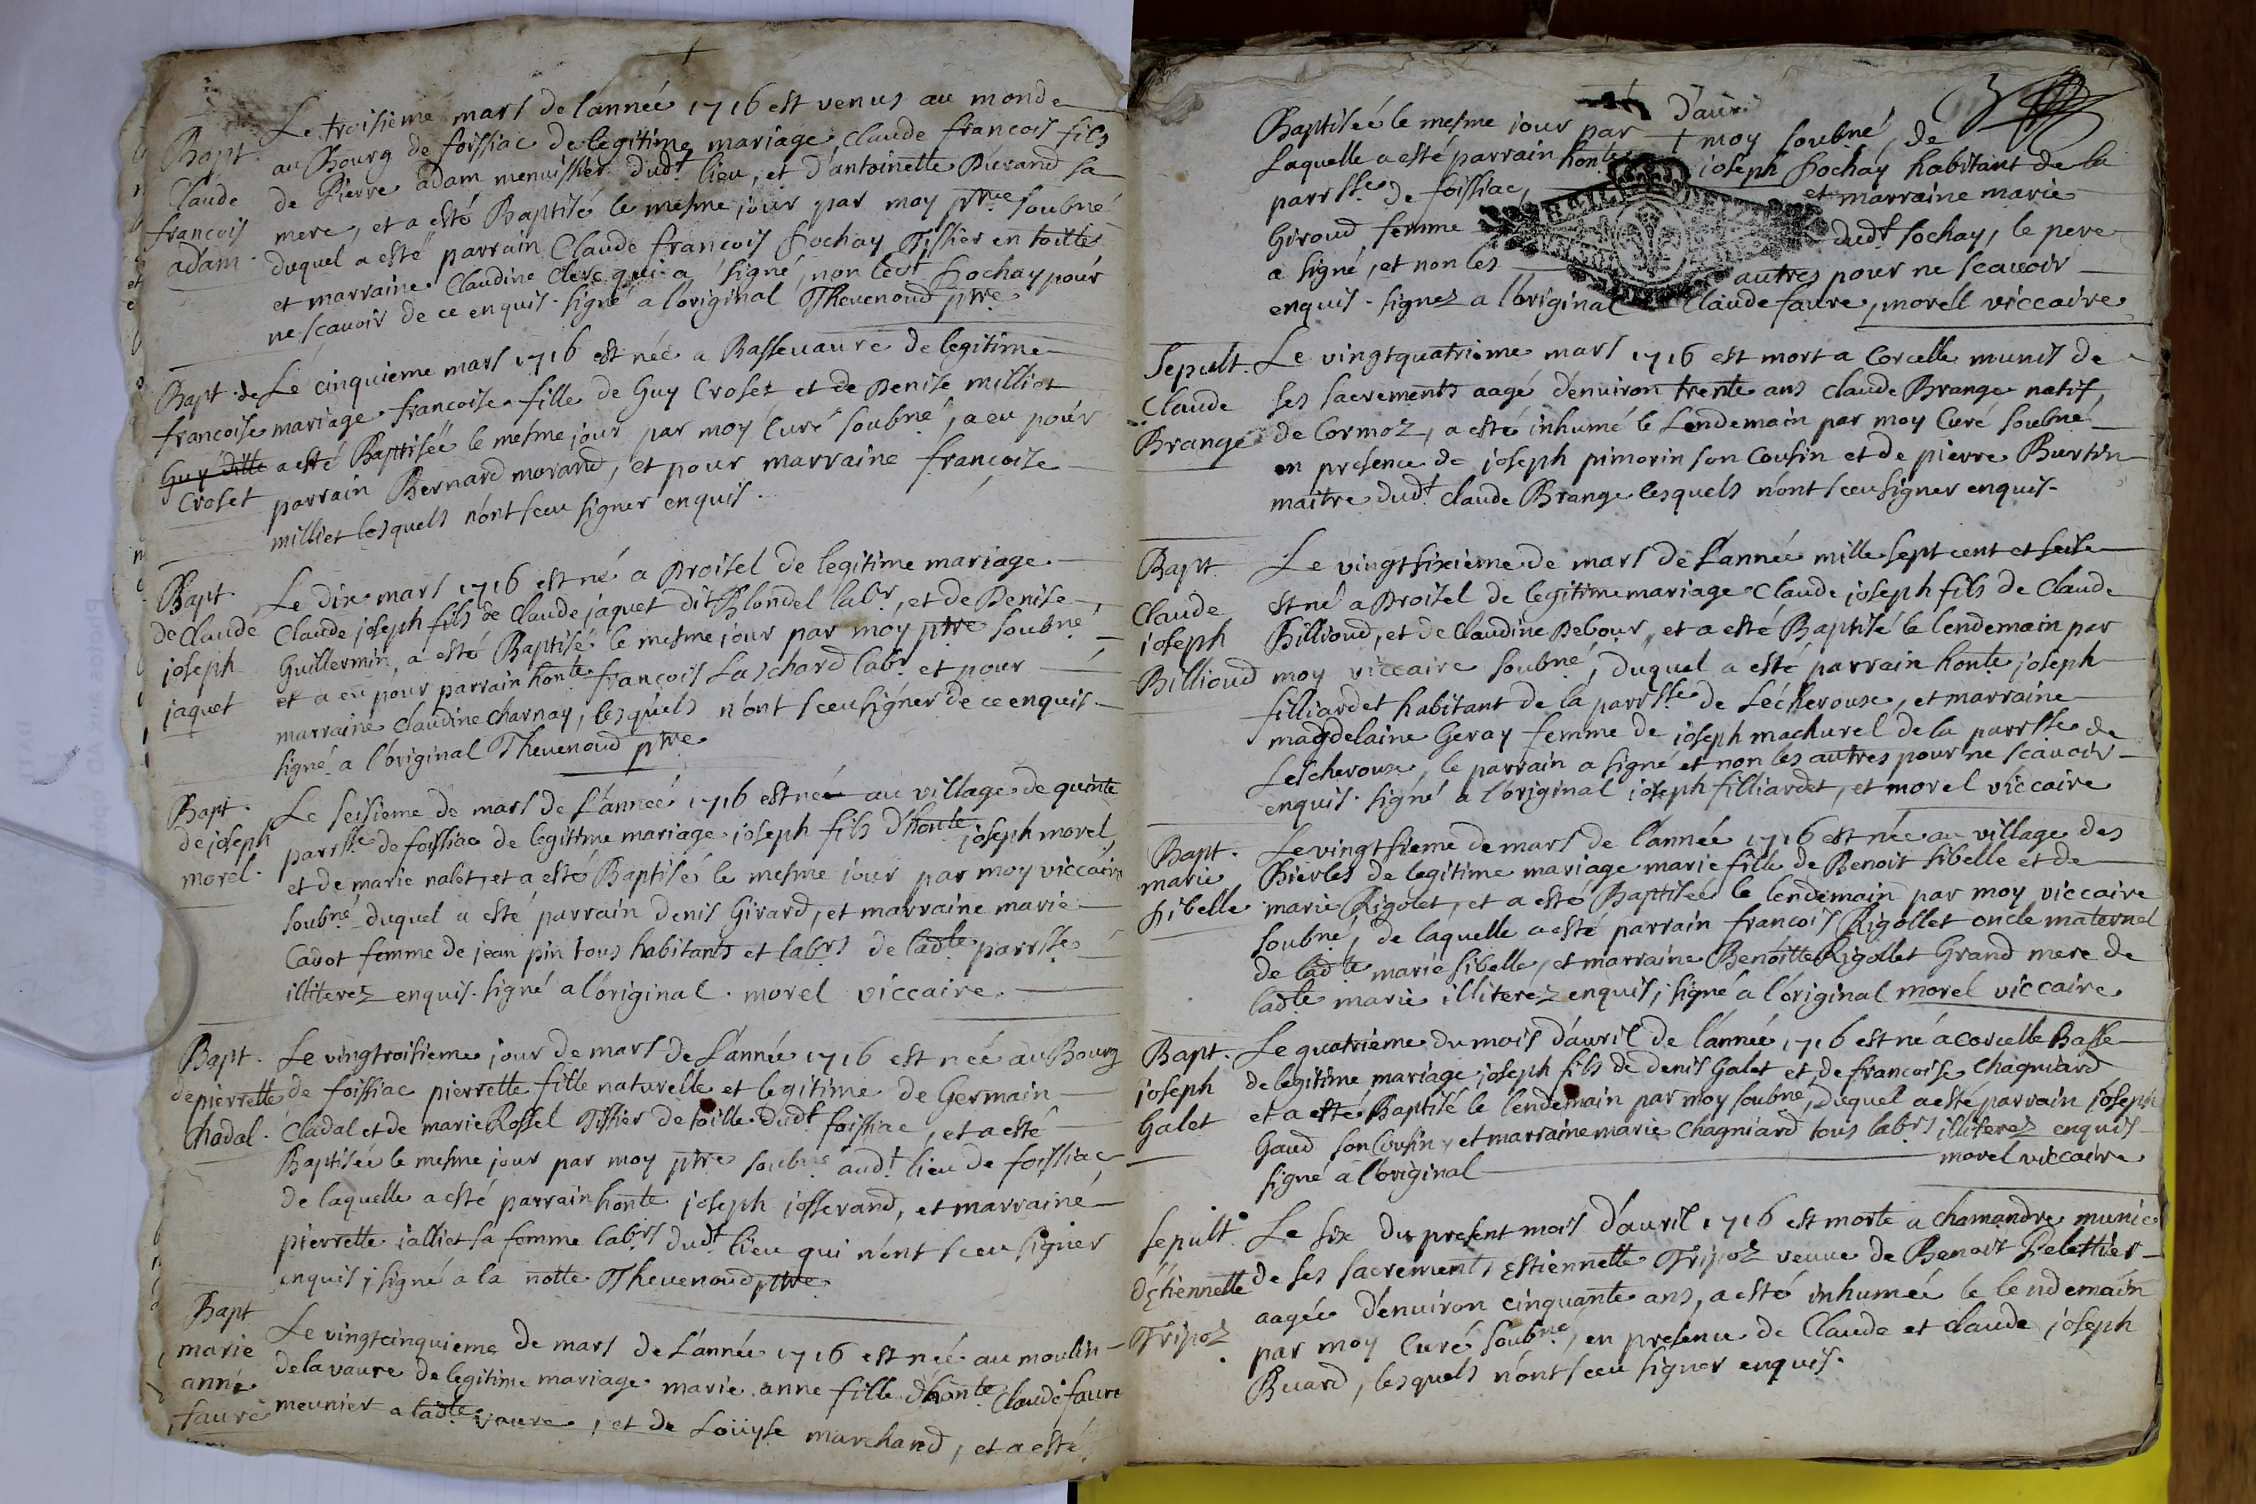 Le troisieme mars de lannée 1716 est venus au monde
Bapt. au Bourg de foissiac de legitime mariage, Claude francois fils
Claude de Pierre adam menuissier dudt lieu, et d'antoinette Durand sa
francois mere, et a esté Baptisé le mesme jour par moy ptre soubné
adam. duquel a esté parrain Claude francois sochay Tissier en toille
et marraine Claudine Clerc qui a signé, non ledt sochay pour
ne scauoir de ce enquis. signé a l'original Theuenoud ptre
Bapt. de Le cinquieme mars 1716 est née a Basseuaure de legitime
francoise mariage francoise fille de Guy Croset et de Denise milliet
Guy ditte a esté Baptisée le mesme jour par moy Curé soubné, a eu pour
Croset parrain Bernard morand, et pour marraine francoise
milliet lesquels n'ont sceu signer enquis.
Bapt. Le dix mars 1716 est né a Droisel de legitime mariage
de Claude Claude joseph fils de Claude jaquet dit Blondel labr, et de Denise
joseph Guillermin, a esté Baptisé le mesme jour par moy ptre soubné
jaquet et a eu pour parrain honte francois Laschard labr et pour
marraine Claudine Charnay, lesquels n'ont sceu signer de ce enquis.
signé a l'original Theuenoud ptre
Bapt. Le seisieme de mars de L'année 1716 est né au village de quinte
de joseph parrsse de foissiac de legitime mariage joseph fils d'honte joseph morel,
morel. et de marie nalet, et a esté Baptisé le mesme jour par moy viccaire
soubné duquel a esté parrain Denis Girard, et marraine marie
Cadot femme de jean pin tous habitants et labrs de ladte parrsse
illiterez enquis. signé a l'original. morel viccaire.
Bapt. Le vingtroisieme jour de mars de L'année 1716 est née au Bourg
de pierrette de foissiac pierrette fille naturelle et legitime de Germain
Chadal. Cladal et de marie Rossel Tissier de toille dudt foissiac, et a esté
Baptisée le mesme jour par moy ptre soubné audt lieu de foissiac
de laquelle a esté parrain honte joseph josserand, et marraine
pierrette jalliet sa femme labrs dudt lieu qui n'ont sceu signer
enquis, signé a la notte Theuenoud ptre
Bapt
marie Le vingtcinquieme de mars de L'année 1716 est née au moulin
anne de la vaure de legitime mariage marie anne fille d'honte Claude faure
faure meunier a ladte vaure, et de Loüyse marchand, et a esté
D'aur.
Baptisée le mesme jour par moy soubné, de
Laquelle a esté parrain honte joseph sochay habitant de la
parrsse de foissiac, et marraine marie
Giroud femme dudt sochay, le pere
a signé, et non les autres pour ne scauoir
enquis. signez a l'original Claude faure, morel viccaire
Sepult. Le vingtquatrieme mars 1716 est mort a Corcelle munis de
Claude ses sacrements aagé d'enuiron trente ans Claude Brange natif
Brange de Cormoz, a esté inhumé le Lendemain par moy Curé soubné
en presence de joseph pimorin son Cousin et de pierre Burtin
maitre dudt Claude Brange lesquels n'ont sceu signer enquis.
Bapt. Le vingtsixieme de mars de L'année mille sept cent et seise
Claude est né a Droisel de legitime mariage Claude joseph fils de Claude
joseph Billioud, et de Claudine Debour, et a esté Baptisé le lendemain par
Billioud moy viccaire soubné, duquel a esté parrain honte joseph
filliardet habitant de la parrsse de Lécheroux, et marraine
magdelaine Geray femme de joseph machurel de la parrsse de
Lescheroux, le parrain a signé et non les autres pour ne scauoir
enquis. signé a l'original joseph filliardet, et morel viccaire
Bapt. Le vingtsieme de mars de l'année 1716 est née au village des
marie Bierles de legitime mariage marie fille de Benoit sibelle et de
sibelle marie Rigolet, et a esté Baptisée le lendemain par moy viccaire
soubné, de laquelle a esté parrain francois Rigollet oncle maternel
de ladte marie sibelle, et marraine Benoitte Rigollet Grand mere de
ladte marie illiterez enquis, signé a l'original morel viccaire
Bapt. Le quatrieme du mois d'auril de l'année 1716 est né a corcelle Basse
joseph de legitime mariage joseph fils de denis Galet et de francoise Chagniard
Galet et a esté Baptisé le lendemain par moy soubné, duquel a esté parrain joseph
Gaud son Cousin, et marraine marie Chagniard tous labrs illiterez enquis
signé a l'original morel viccaire
Sepult. Le six du present mois d'auril 1716 est morte a chamandre munie
d'Etiennette de ses sacrements Estiennette Tripoz veuue de Benoit Pelettier
Tripoz aagée d'enuiron cinquante ans, a esté inhumée le lendemain
par moy Curé soubné, en presence de Claude et claude joseph
Buard, lesquels n'ont sceu signer enquis.